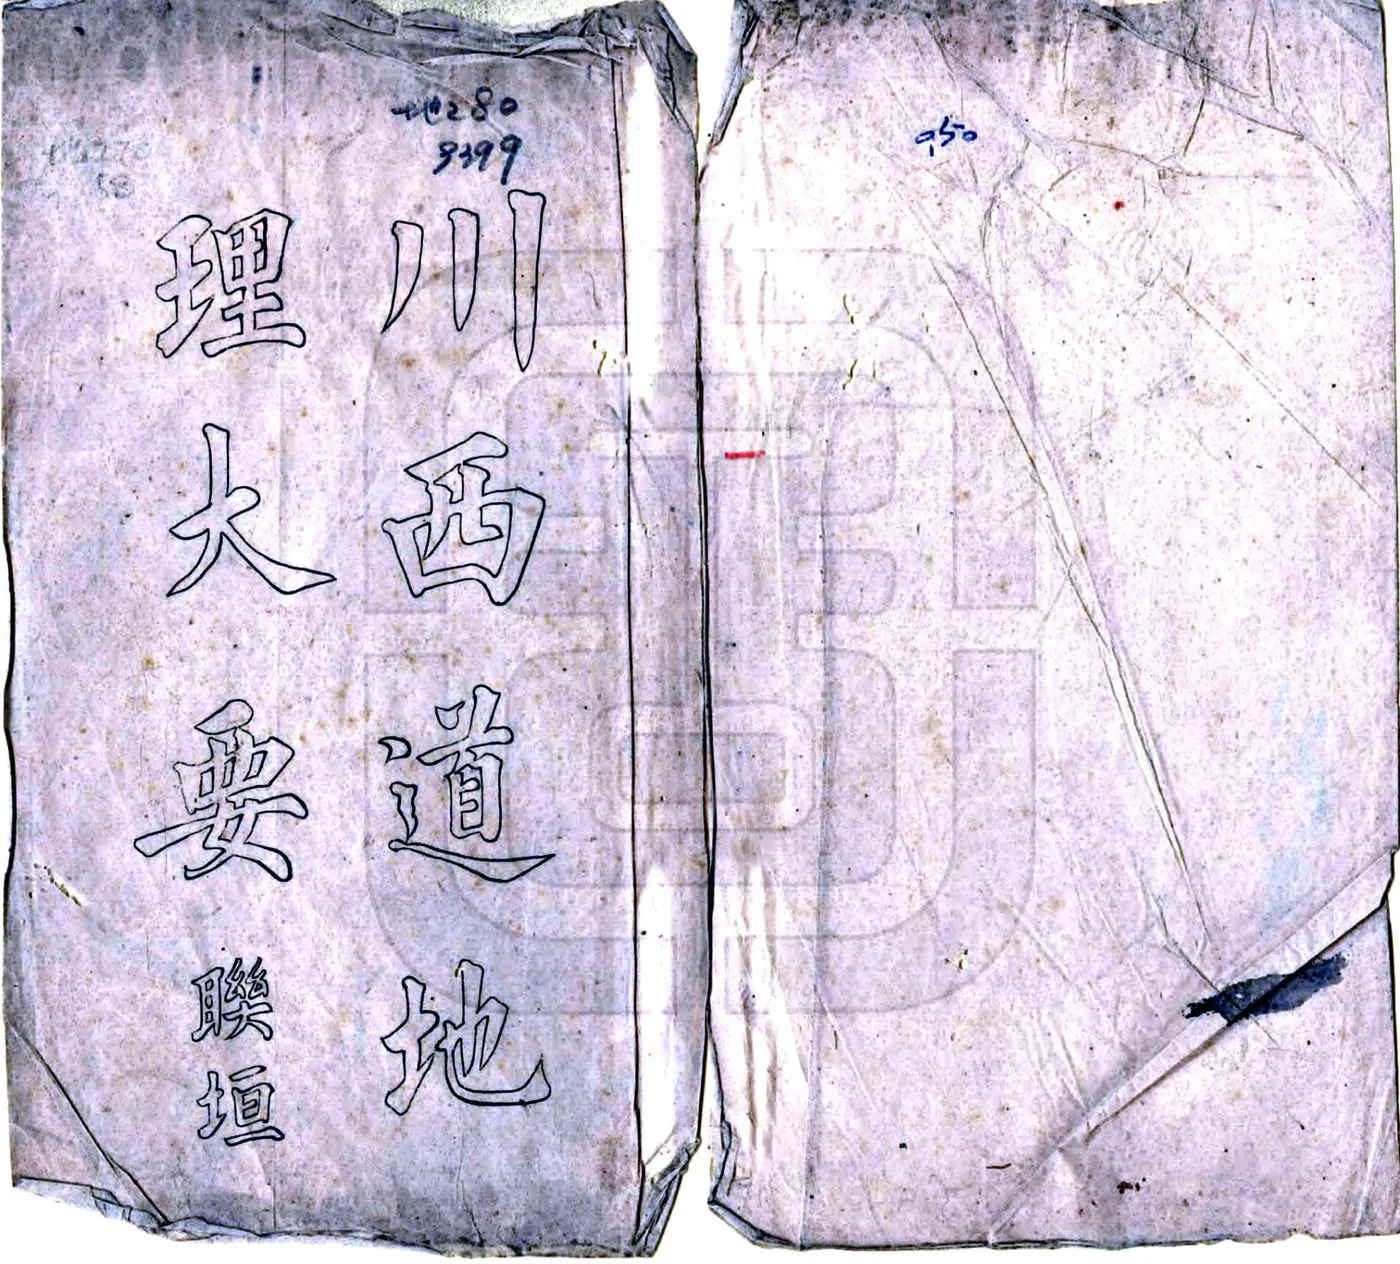 地280
9399
川西道地
理大要
聯垣
950